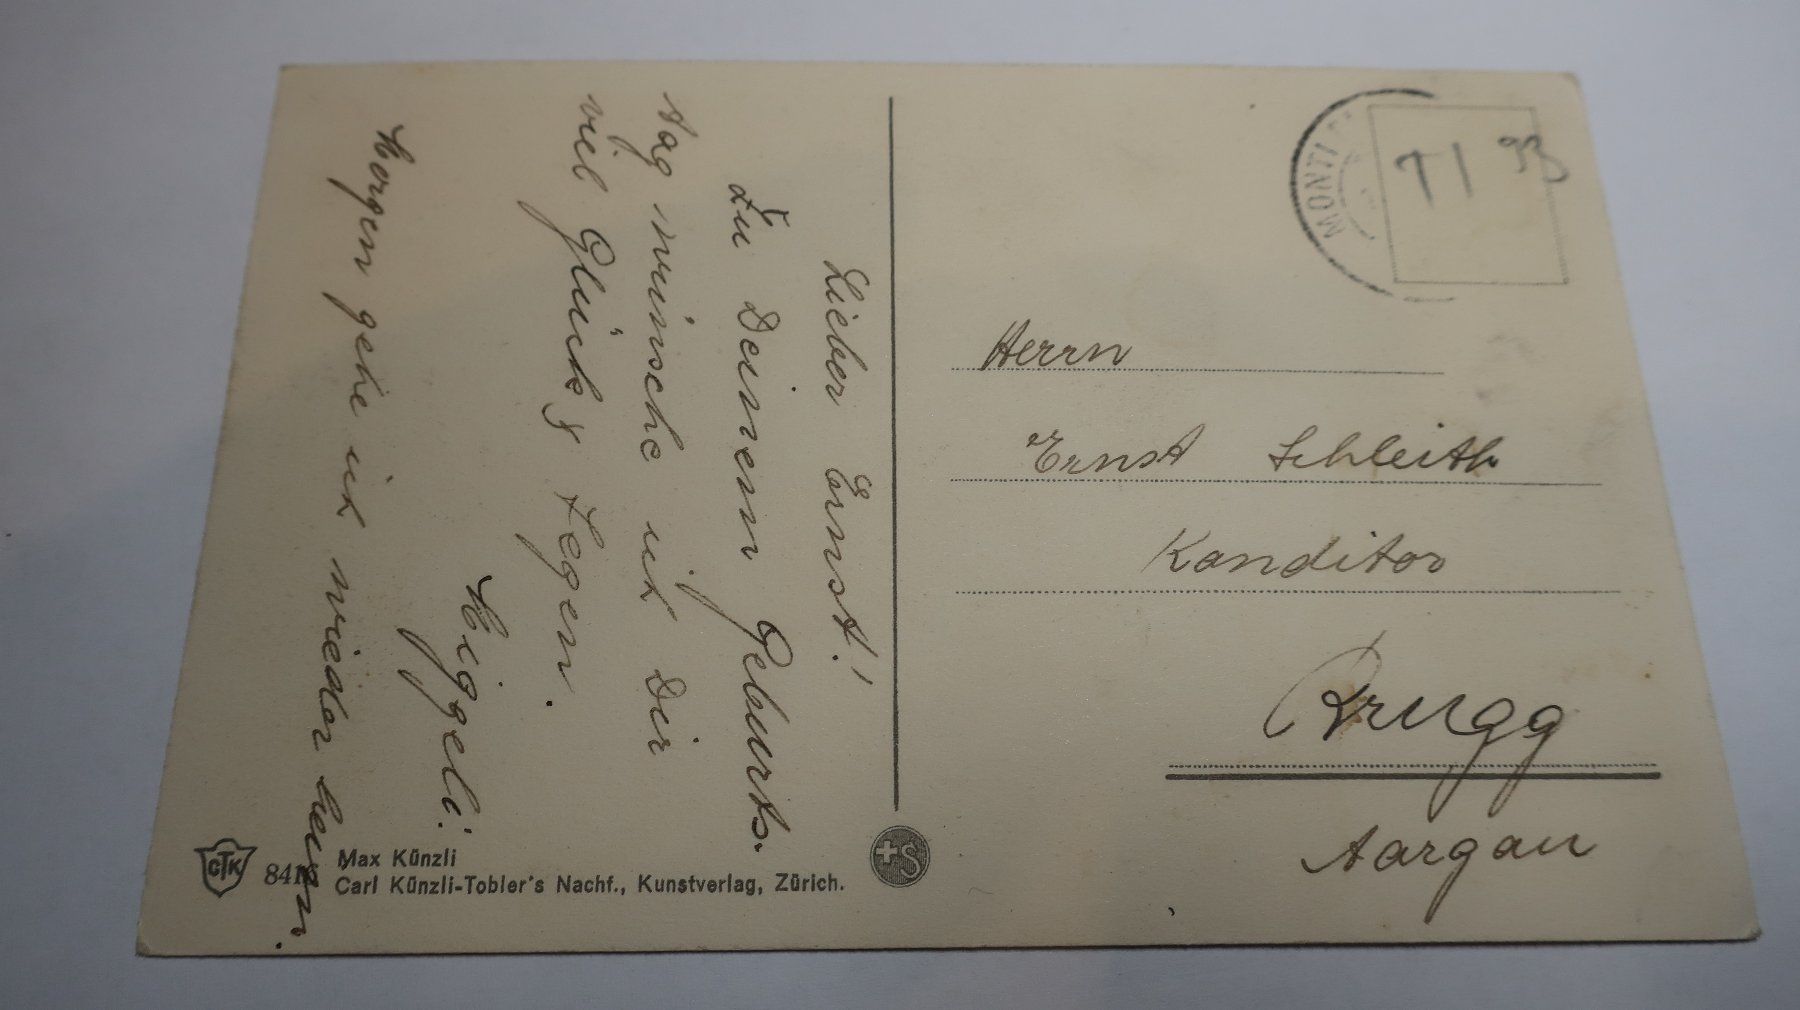 Lieber Ernst!
Zu Deinem Geburts.
tag wünsche ich Dir
viel Glück & Segen.
Heiggeli.
Morgen gehe ich wieder heim.
MONTI
Herrn
Ernst Schleith
Konditor
Brugg
Aargau
CTK
Max Künzli
Carl Künzli-Tobler's Nachf., Kunstverlag, Zürich.